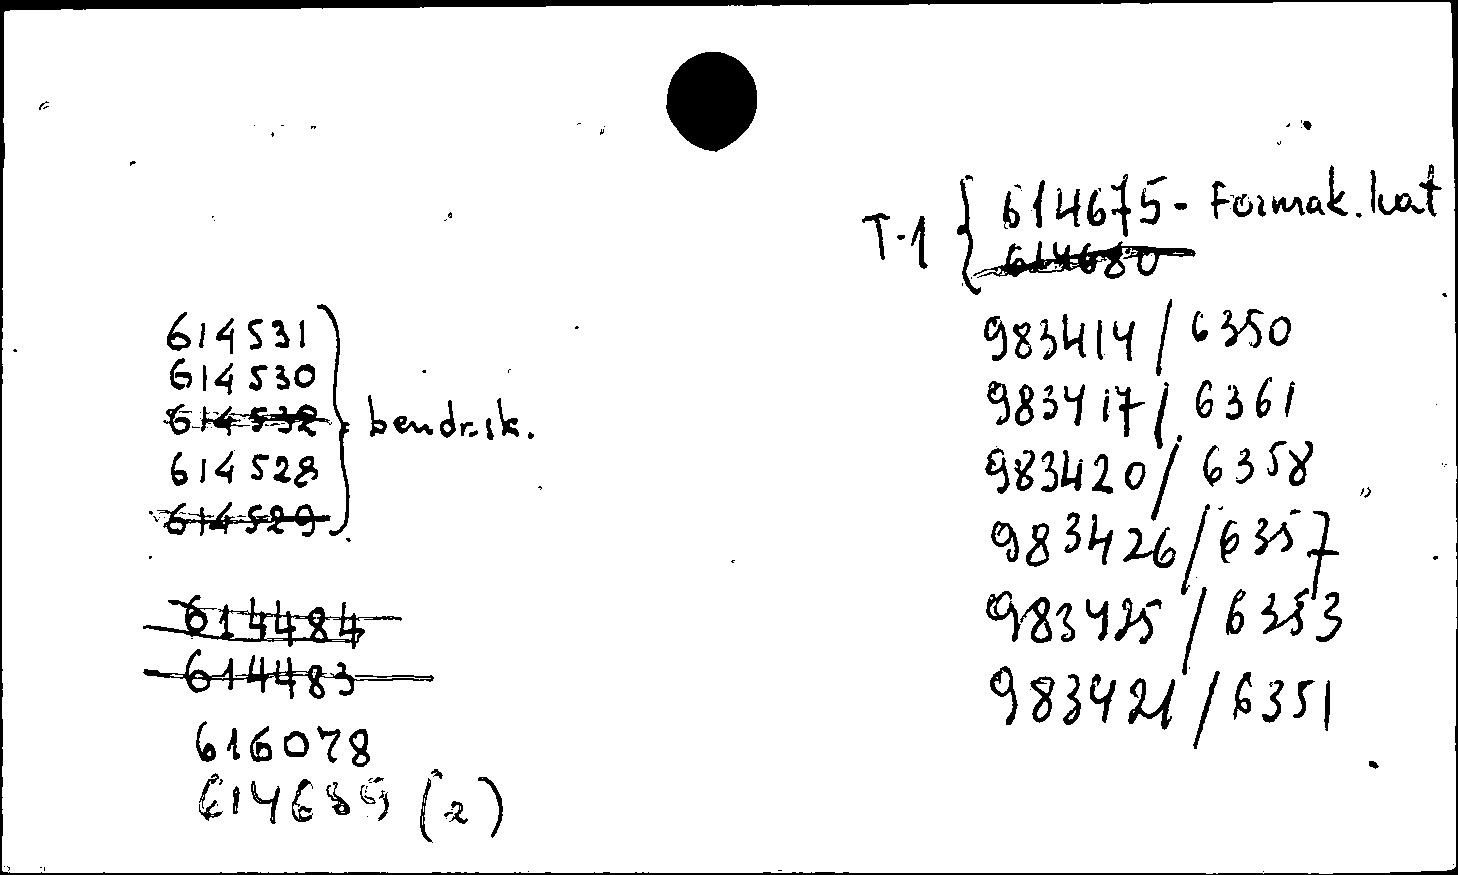 614531
614530
614532
614528
614529
bendr.sk.
614484
614483
616078
614689 (2)
T-1 { 614675 - Formak. kat
614680
983414 / 6350
983417 / 6361
983420 / 6358
983426 / 6357
983425 / 6353
983421 / 6351